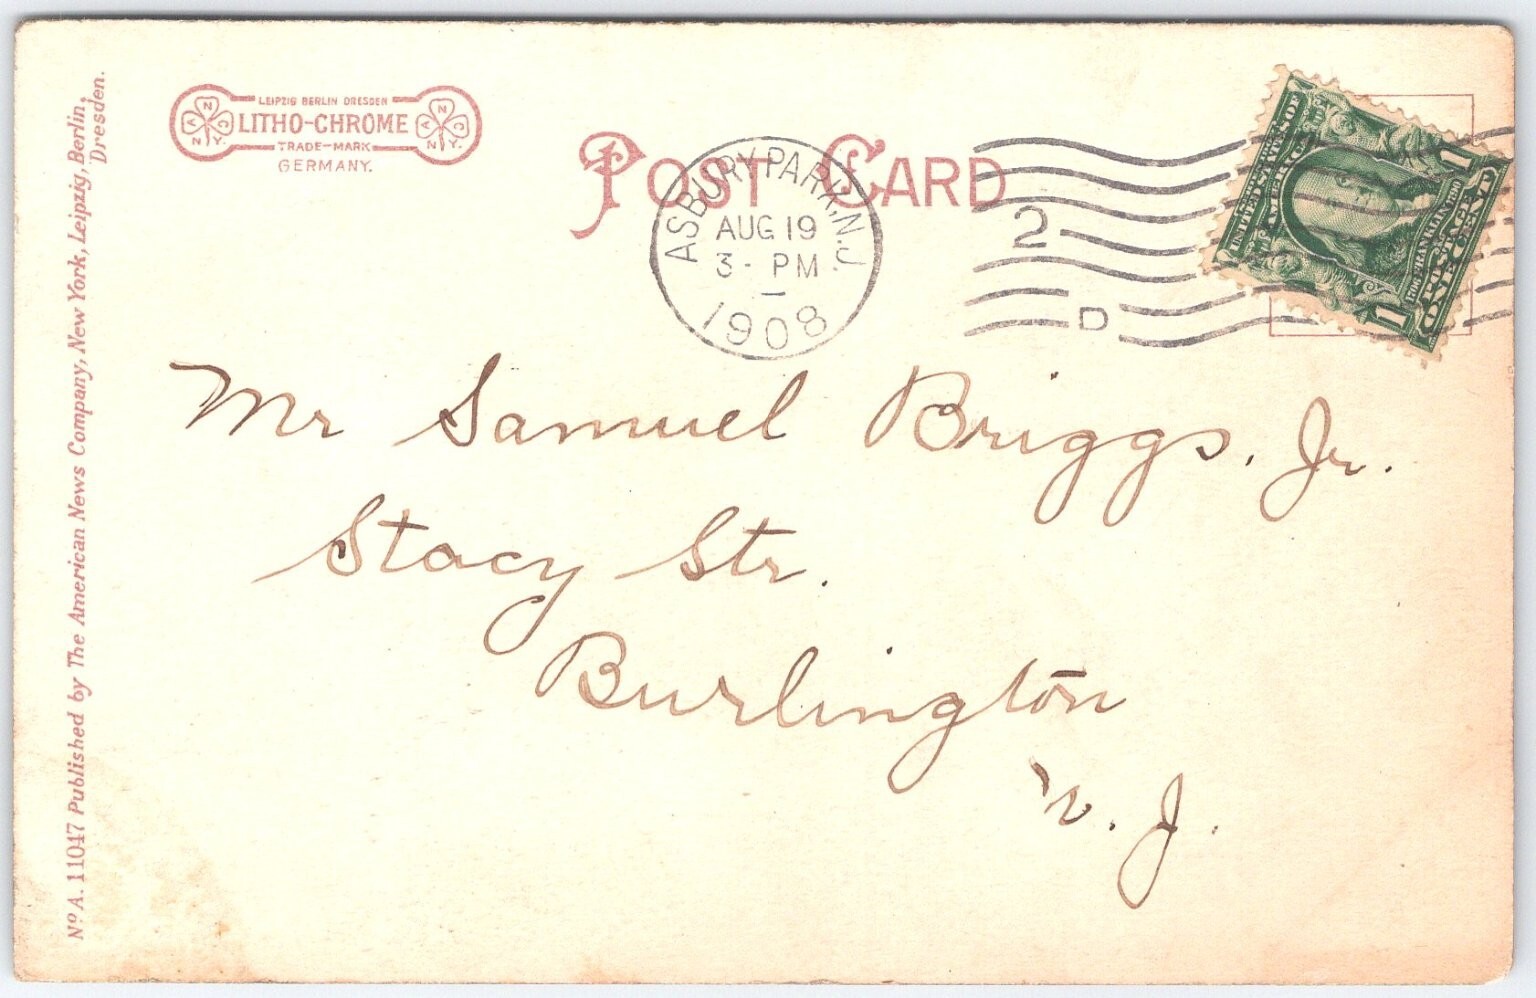 LEIPZIG BERLIN DRESDEN
LITHO-CHROME
TRADE-MARK
GERMANY.
POST CARD
ASBURY PARK, N.J.
AUG 19
3 - PM
1908
2
D
UNITED STATES OF
AMERICA
1706 FRANKLIN 1790
POSTAGE
ONE CENT
1
1
Mr Samuel Briggs, Jr.
Stacy Str.
Burlington
N. J.
Nº A. 11047 Published by The American News Company, New York, Leipzig, Berlin,
Dresden.